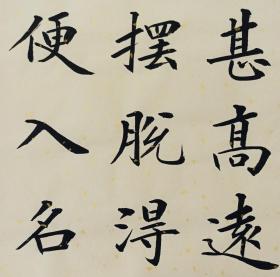 甚高遠
擺脫得
便入名